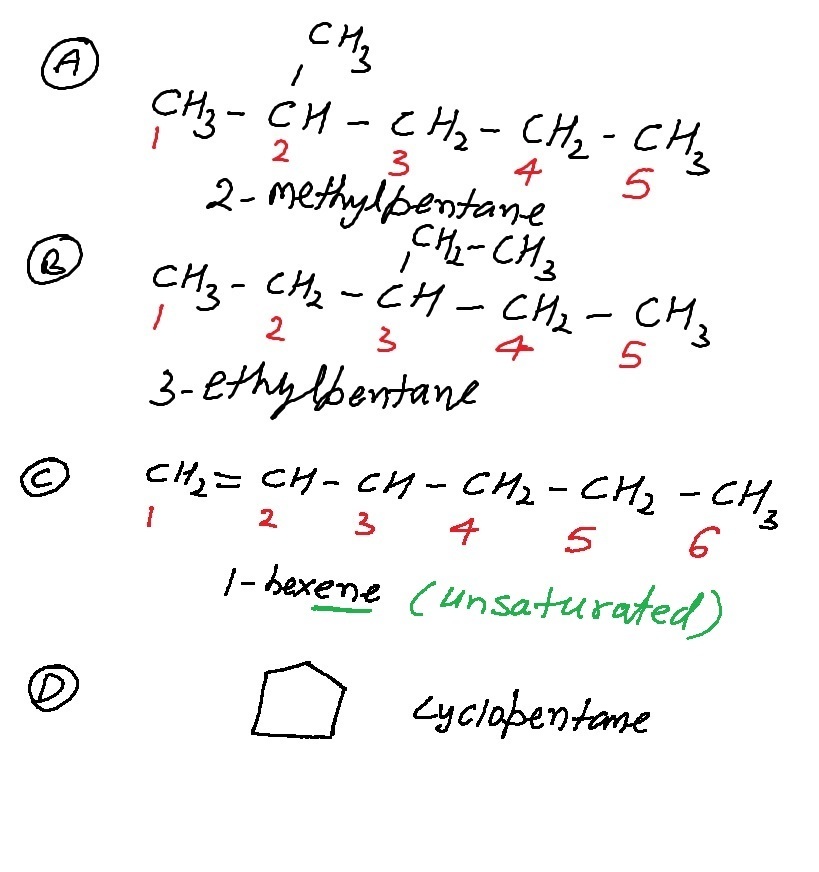 A
CH3
CH3 - CH - CH2 - CH2 - CH3
1 2 3 4 5
2-methylpentane
B
CH2-CH3
CH3 - CH2 - CH - CH2 - CH3
1 2 3 4 5
3-ethylpentane
C
CH2 = CH - CH - CH2 - CH2 - CH3
1 2 3 4 5 6
1-hexene (unsaturated)
D
cyclopentane